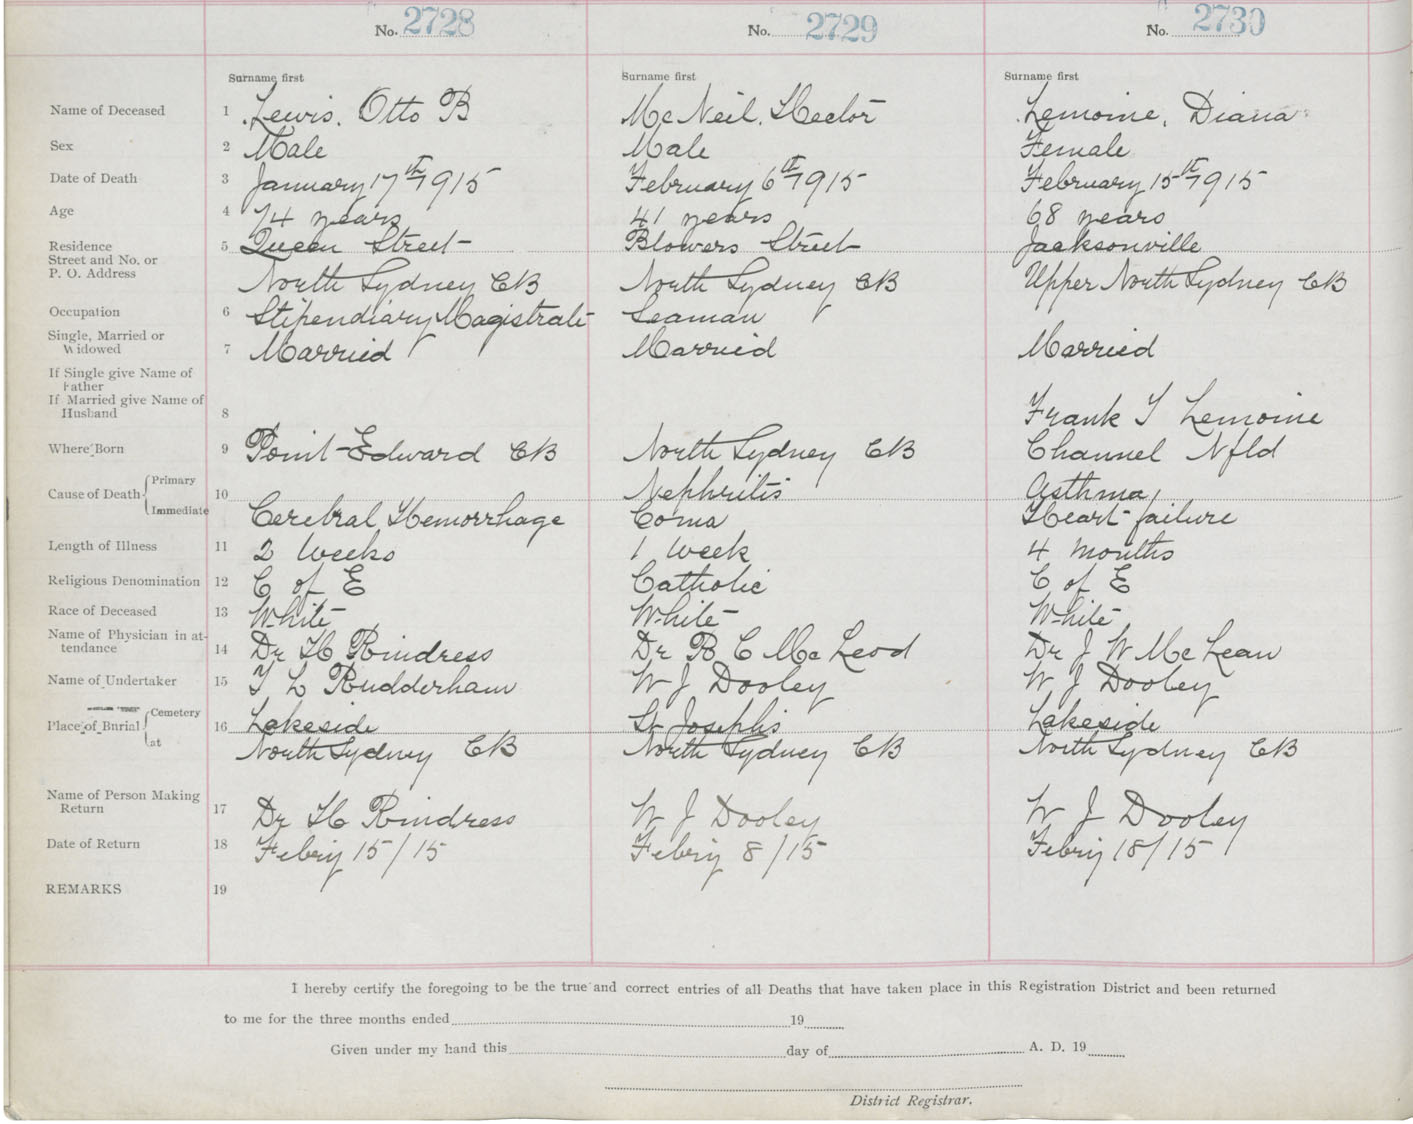 No. 2728 No. 2729 No. 2730
Surname first Surname first Surname first
Name of Deceased 1 Lewis, Otto B McNeil, Hector Lemoine, Diana
Sex 2 Male Male Female
Date of Death 3 January 17th 1915 February 6th 1915 February 15th 1915
Age 4 74 years 41 years 68 years
Residence 5 Queen Street Blowers Street Jacksonville
Street and No. or
P. O. Address North Sydney CB North Sydney CB Upper North Sydney CB
Occupation 6 Stipendiary Magistrate Seaman
Single, Married or
Widowed 7 Married Married Married
If Single give Name of
Father
If Married give Name of
Husband 8 Frank T Lemoine
Where Born 9 Point Edward CB North Sydney CB Channel Nfld
Cause of Death Primary 10 Nephritis Asthma,
Immediate Cerebral Hemorrhage Coma Heart failure
Length of Illness 11 2 Weeks 1 Week 4 months
Religious Denomination 12 C of E Catholic C of E
Race of Deceased 13 White White White
Name of Physician in at-
tendance 14 Dr H Rindress Dr B C McLeod Dr J W McLean
Name of Undertaker 15 T L Rudderham W J Dooley W J Dooley
Place of Burial Cemetery 16 Lakeside St Joseph's Lakeside
at North Sydney CB North Sydney CB North Sydney CB
Name of Person Making
Return 17 Dr H Rindress W J Dooley W J Dooley
Date of Return 18 Febriy 15/15 Febriy 8/15 Febriy 18/15
REMARKS 19
I hereby certify the foregoing to be the true and correct entries of all Deaths that have taken place in this Registration District and been returned
to me for the three months ended 19
Given under my hand this day of A. D. 19
District Registrar.